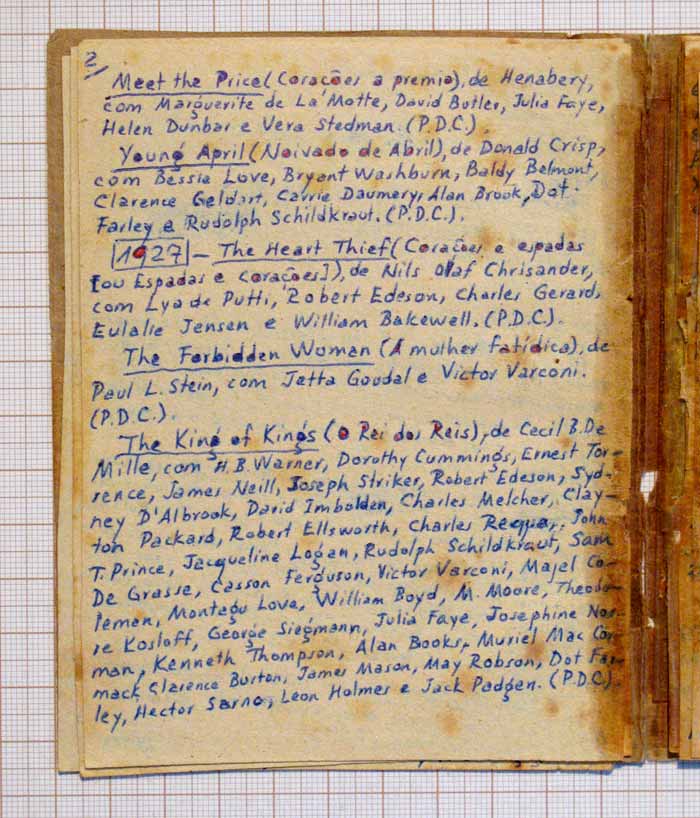 2/
Meet the Price (Corações a premio), de Henabery,
com Marguerite de La Motte, David Butler, Julia Faye,
Helen Dunbar e Vera Stedman. (P.D.C.).
Young April (Noivado de Abril), de Donald Crisp,
com Bessia Love, Bryant Washburn, Baldy Belmont,
Clarence Geldart, Carrie Daumery, Alan Brook, Dot
Farley e Rudolph Schildkraut. (P.D.C.).
1927 — The Heart Thief (Corações e espadas
[ou Espadas e corações]), de Nils Olaf Chrisander,
com Lya de Putti, Robert Edeson, Charles Gerard,
Eulalie Jensen e William Bakewell. (P.D.C.).
The Forbidden Woman (A mulher fatídica), de
Paul L. Stein, com Jetta Goudal e Victor Varconi.
(P.D.C.).
The King of Kings (O Rei dos Reis), de Cecil B. De
Mille, com H.B. Warner, Dorothy Cummings, Ernest Tor-
rence, James Neill, Joseph Striker, Robert Edeson, Syd-
ney D'Albrook, David Imbolden, Charles Melcher, Clay-
ton Packard, Robert Ellsworth, Charles Requa, John
T. Prince, Jacqueline Logan, Rudolph Schildkraut, Sam
De Grasse, Casson Ferguson, Victor Varconi, Majel Co-
leman, Montagu Love, William Boyd, M. Moore, Theodo-
re Kosloff, George Siegmann, Julia Faye, Josephine Nor-
man, Kenneth Thompson, Alan Books, Muriel Mac Cor-
mack, Clarence Burton, James Mason, May Robson, Dot Far-
ley, Hector Sarno, Leon Holmes e Jack Padgen. (P.D.C).